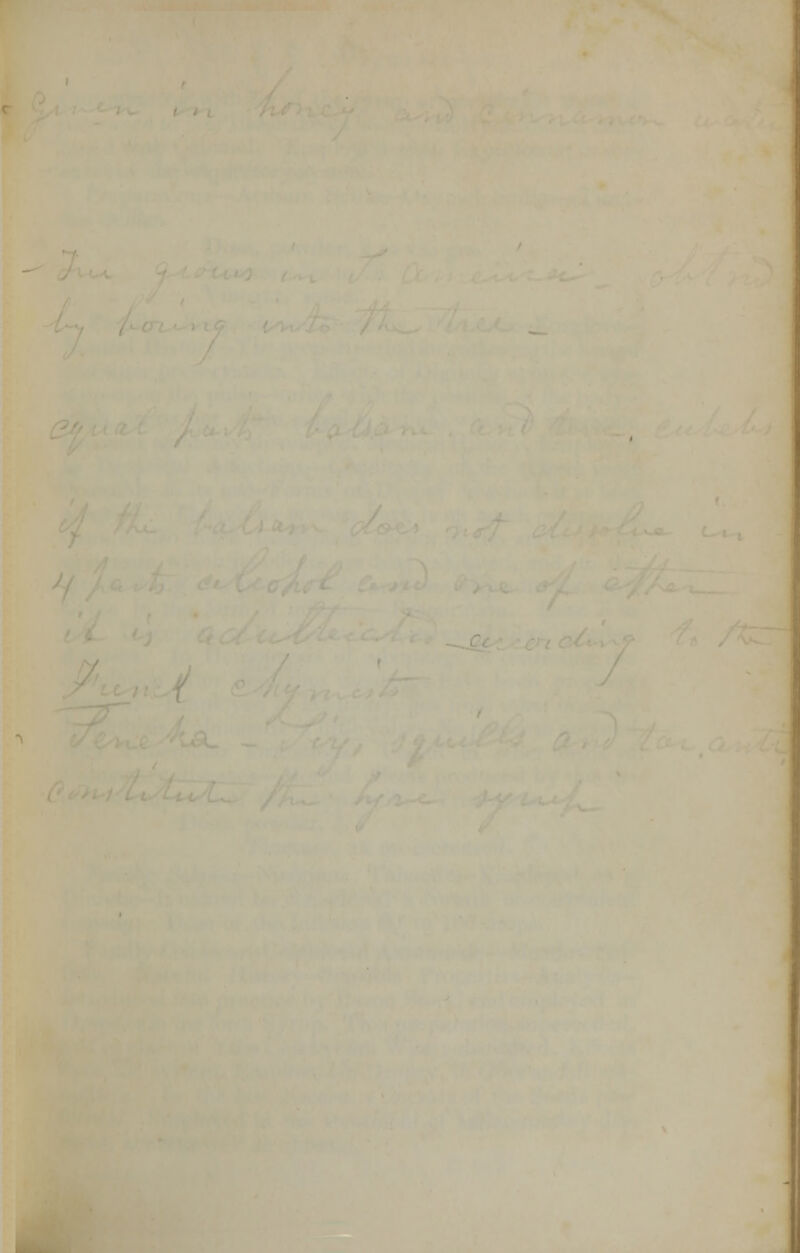 given in honey and cinnamon
- Tree grows in S. America - obt'nd
by boring into the tree -
equal parts balsam. and cubebs
if the balsam does not dissolve in
4 parts alcohol and one of ether
it is adulterated according to the
chymists
Seneka - squills and tar. anti
constitute the hyve syrup